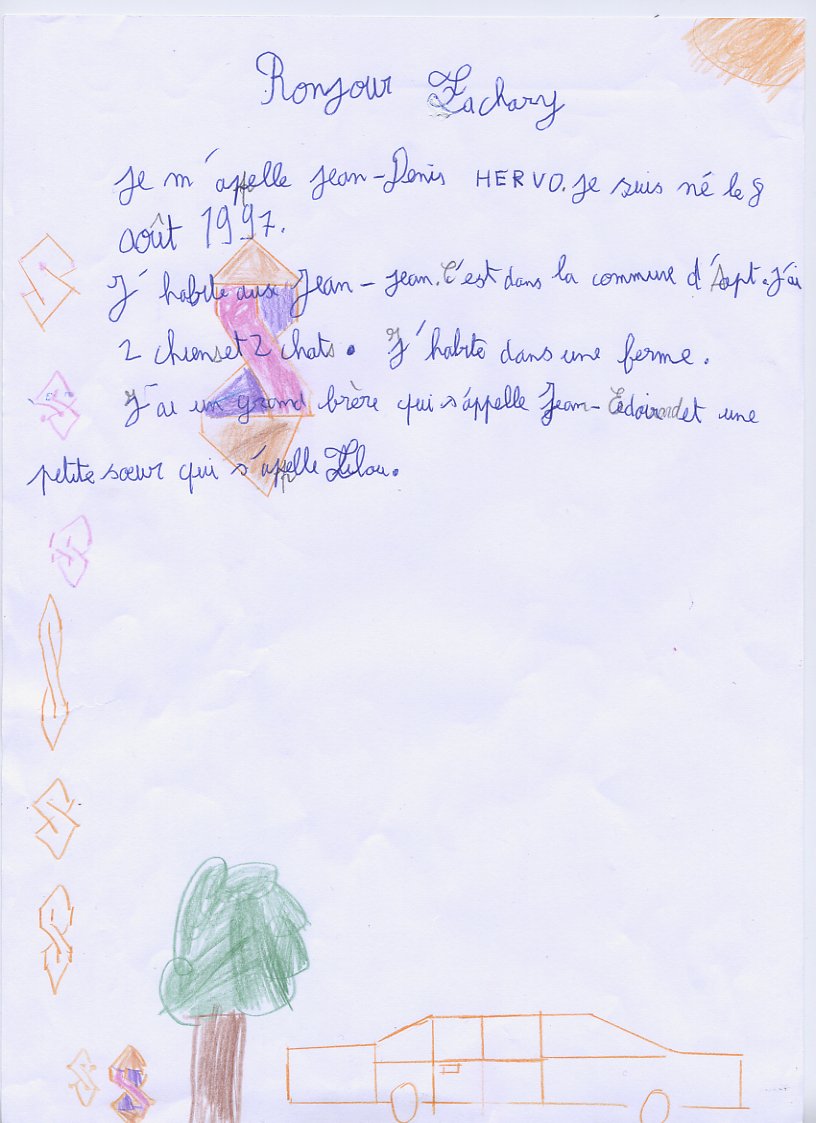 Bonjour Zachary
Je m'appelle Jean-Denis HERVO. Je suis né le 8
août 1997.
J'habite aux Jean-Jean. C'est dans la commune d'Apt. J'ai
2 chiens et 2 chats. J'habite dans une ferme.
J'ai un grand brère qui s'appelle Jean- et une
petite sœur qui s'appelle Lilou.